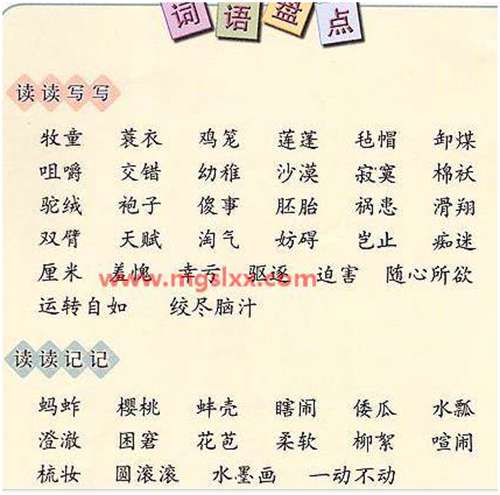 词语盘点
读读写写
牧童 蓑衣 鸡笼 莲蓬 毡帽 卸煤
咀嚼 交错 幼稚 沙漠 寂寞 棉袄
驼绒 袍子 傻事 胚胎 祸患 滑翔
双臂 天赋 淘气 妨碍 岂止 痴迷
厘米 羞愧 幸亏 驱逐 迫害 随心所欲
www.mgslxx.com
运转自如 绞尽脑汁
读读记记
蚂蚱 樱桃 蚌壳 瞎闹 倭瓜 水瓢
澄澈 困窘 花苞 柔软 柳絮 喧闹
梳妆 圆滚滚 水墨画 一动不动